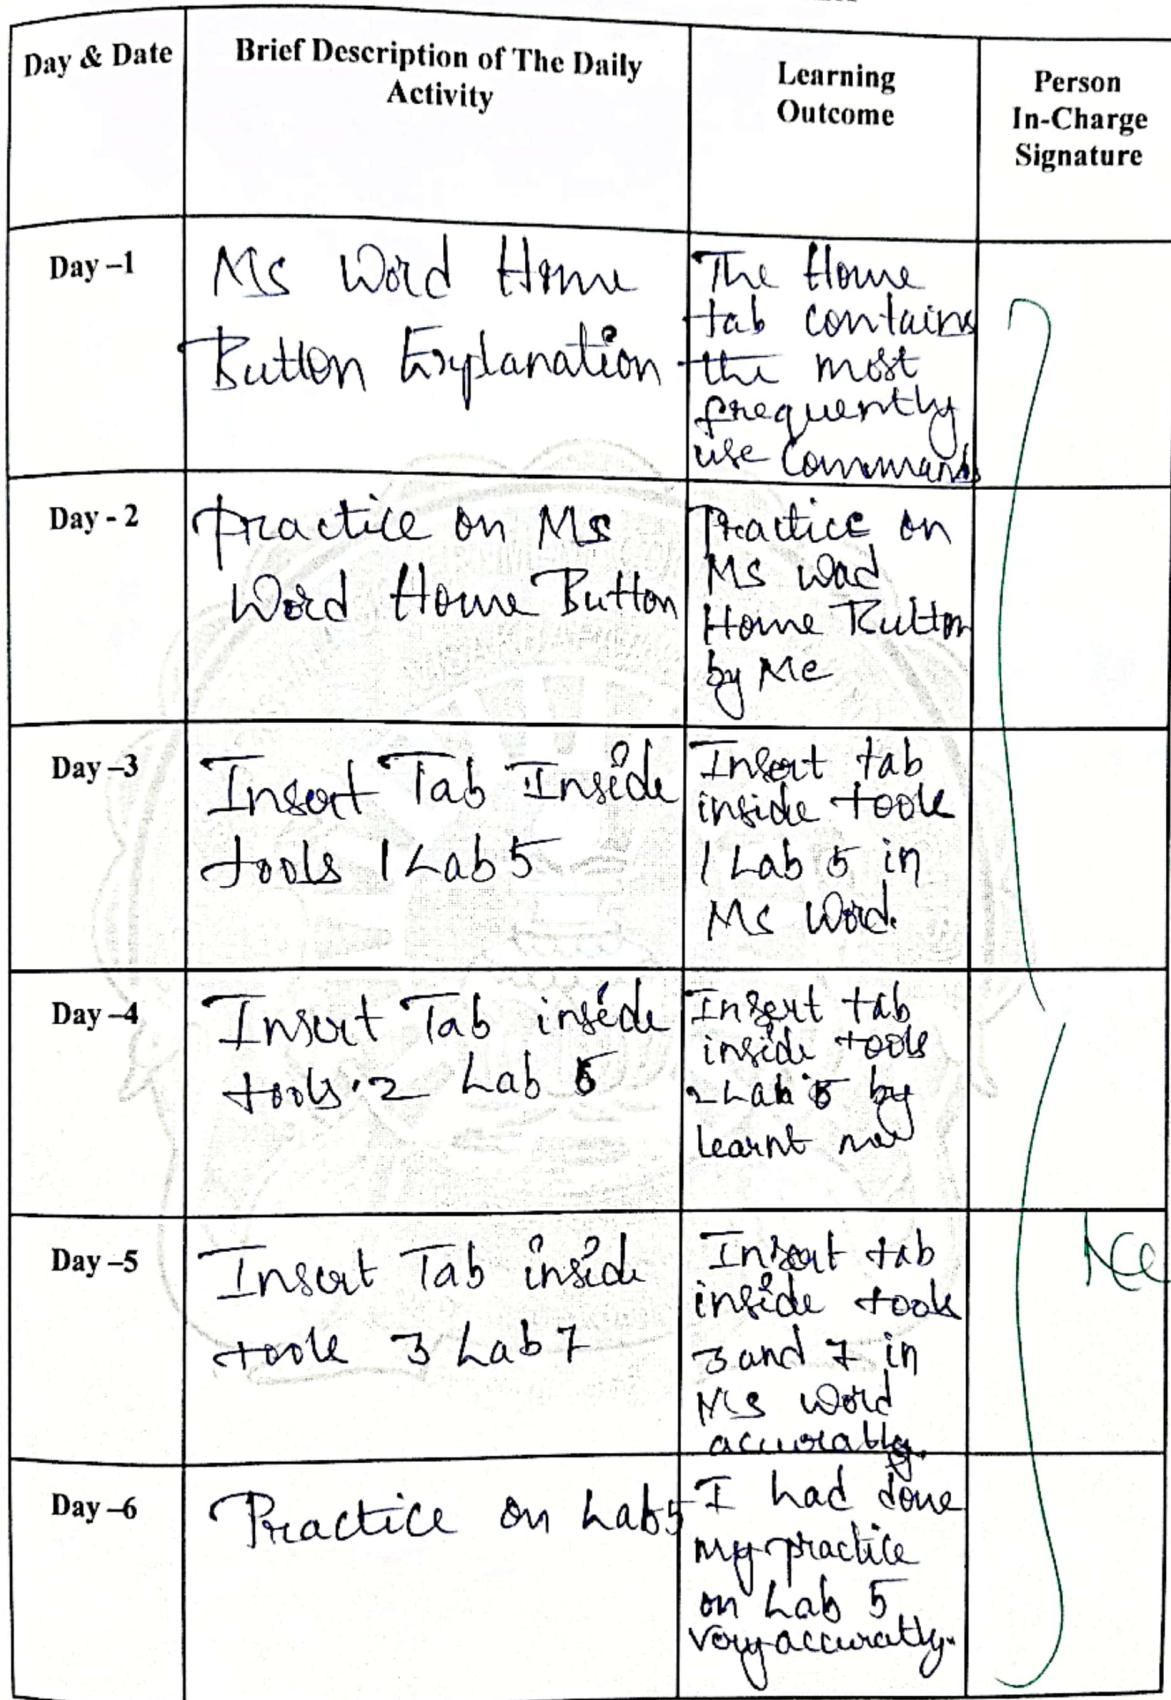 Day & Date
Brief Description of The Daily
Activity
Learning
Outcome
Person
In-Charge
Signature
Day –1
Ms Word Home
Button Explanation
The Home
tab contains
the most
frequently
use Commands
Day - 2
Practice on Ms
Word Home Button
Practice on
Ms Wad
Home Button
by Me
Day –3
Insert Tab Inside
tools 1 Lab 5
Insert tab
inside tools
1 Lab 5 in
Ms Word.
Day –4
Insert Tab inside
tools 2 Lab 5
Insert tab
inside tools
2 Lab 5 by
learnt me
Day –5
Insert Tab inside
tools 3 Lab 7
Insert tab
inside tools
3 and 7 in
Ms Word
accurately.
Day –6
Practice on Lab 5
I had done
my practice
on Lab 5
very accuratly.